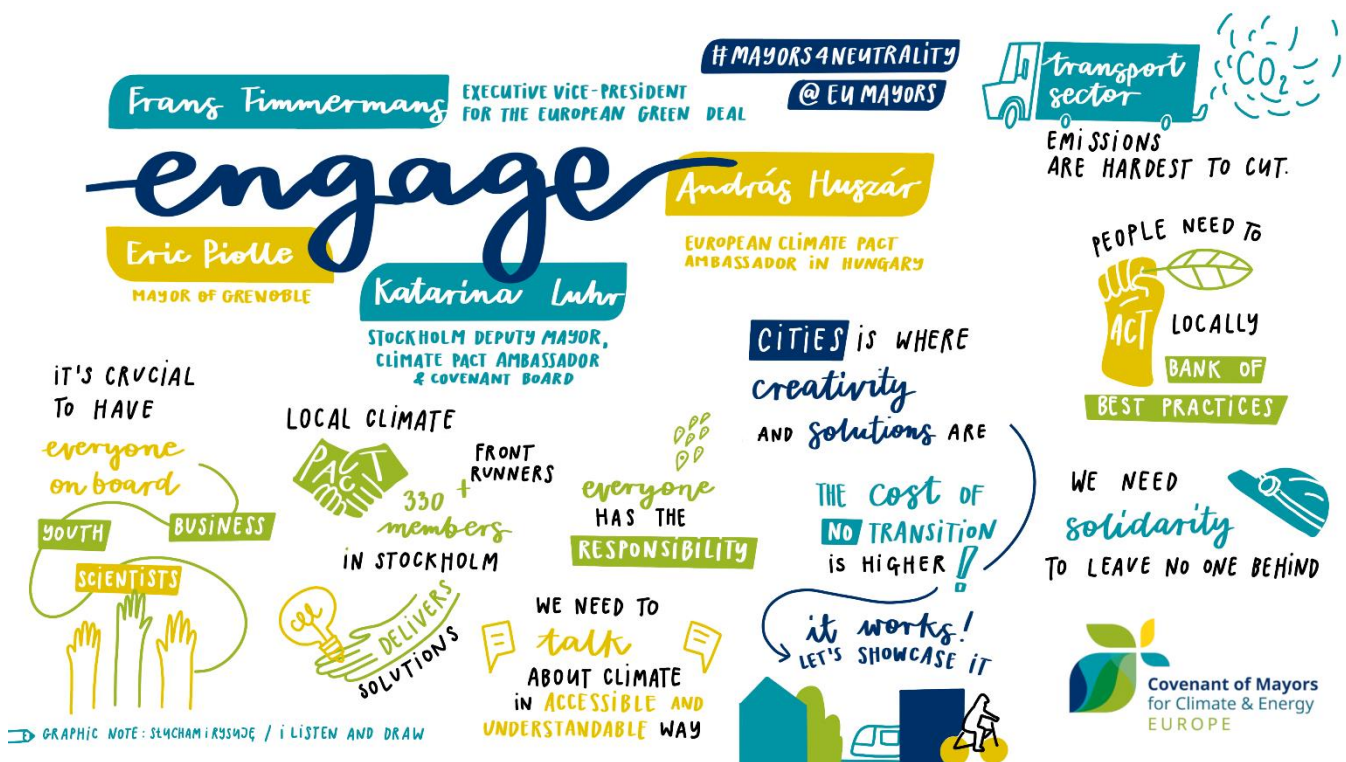 #MAYORS4NEUTRALITY
@ EU MAYORS
Frans Timmermans
EXECUTIVE VICE-PRESIDENT
FOR THE EUROPEAN GREEN DEAL
engage
András Huszár
EUROPEAN CLIMATE PACT
AMBASSADOR IN HUNGARY
Eric Piolle
MAYOR OF GRENOBLE
Katarina Luhr
STOCKHOLM DEPUTY MAYOR,
CLIMATE PACT AMBASSADOR
& COVENANT BOARD
transport
sector
CO2
EMISSIONS
ARE HARDEST TO CUT.
PEOPLE NEED TO
ACT
LOCALLY
BANK OF
BEST PRACTICES
IT'S CRUCIAL
TO HAVE
everyone
on board
YOUTH
BUSINESS
SCIENTISTS
LOCAL CLIMATE
PACT
330 +
members
FRONT
RUNNERS
IN STOCKHOLM
DELIVERS
SOLUTIONS
everyone
HAS THE
RESPONSIBILITY
WE NEED TO
talk
ABOUT CLIMATE
IN ACCESSIBLE AND
UNDERSTANDABLE WAY
CITIES IS WHERE
creativity
AND solutions ARE
THE cost OF
NO TRANSITION
IS HIGHER !
it works!
LET'S SHOWCASE IT
WE NEED
solidarity
TO LEAVE NO ONE BEHIND
Covenant of Mayors
for Climate & Energy
EUROPE
GRAPHIC NOTE: SŁUCHAM I RYSUJĘ / I LISTEN AND DRAW